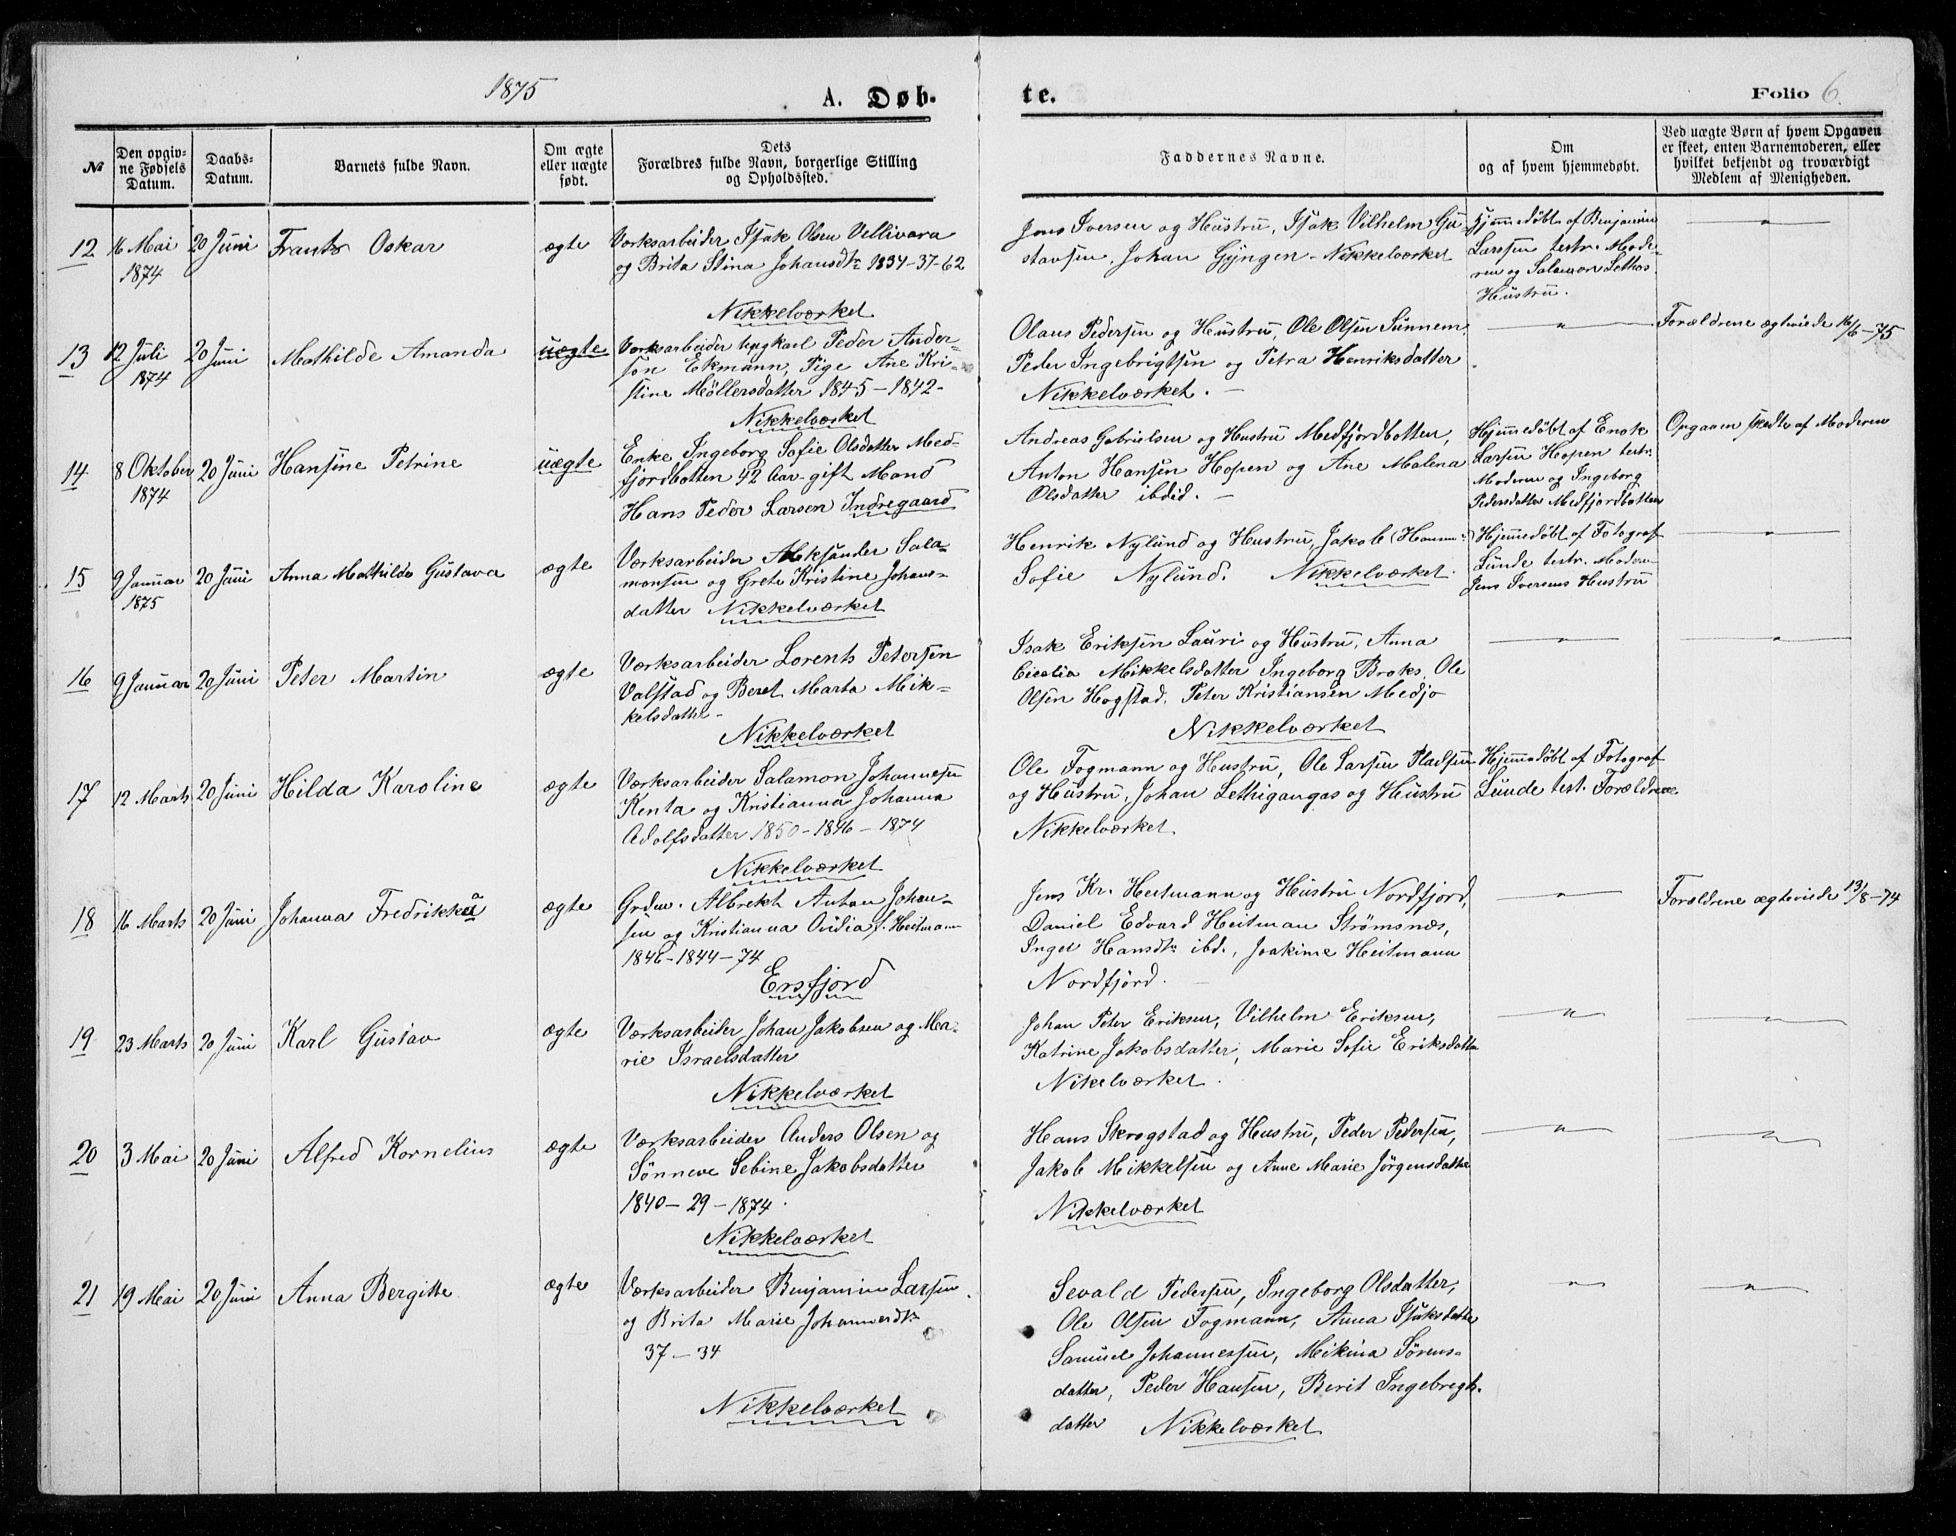 1875 A. Døb- te. Folio 6.
№ Den opgivne Fødsels Datum. Daabs-Datum. Barnets fulde Navn. Om ægte eller uægte født. Dets Forældres fulde Navn, borgerlige Stilling og Opholdssted. Faddernes Navne. Om og af hvem hjemmedøbt. Ved uægte Børn af hvem Opgaven er skeet, enten Barnemoderen, eller hvilket bekjendt og troværdigt Medlem af Menigheden.
12 16 Mai 1874 20 Juni Frants Oskar ægte
Værksarbeider Isak Olsen Vellivara
og Brita Stina Johansdtr 1834-37-62
Nikkelværket
Jens Iversen og Hustru, Isak Vilhelm Gu-
stavsen, Johan Gyngen - Nikkelværket
Hjemmedøbt af Benjamin
Larssen testr. Mode-
ren og Salamon Lethos
Hustru.
13 12 Juli 1874 20 Juni Mathilde Amanda uægte
Værksarbeider Ungkarl Peder Ander-
son Ekmann, Pige Ane Kri-
stine Møllersdatter 1845-1842-
Nikkelværket
Olaus Pedersen og Hustru, Ole Olsen Sunnem
Peder Ingebrigtsen og Petra Henriksdatter
Nikkelværket. -
Forældrene ægteviede 16/6-75
14 8 Oktober 1874 20 Juni Hansine Petrine uægte
Enke Ingeborg Sofie Olsdatter Med-
fjordbotten 42 Aar - gift Mand
Hans Peder Larsen Indregaard
Andreas Gabrielsen og Hustru Medfjordbotten,
Anton Hansen Hopen og Ane Malena
Olsdatter ibdid. -
Hjemmedøbt af Enok
Larsen Hopen testr.
Moderen og Ingeborg
Pedersdatter Medfjordbotten
Opgaven skedte af Moderen
15 9 Januar 1875 20 Juni Anna Mathilde Gustava ægte
Værksarbeider Aleksander Sala-
monsen og Grete Kristine Johans-
datter Nikkelværket
Henrik Nylund og Hustru, Jakob
Sofie Nylund. Nikkelværket.
Hjemmedøbt af Fotograf
Lunde testr. Moderen
Jens Iversens Hustru
16 9 Januar 20 Juni Peter Martin ægte
Værksarbeider Lorents Petersen
Valstad og Beret Marta Mik-
kelsdatter -
Nikkelværket
Isak Eriksen Lauri og Hustru, Anna
Cicelia Mikkelsdatter Ingeborg Broks, Ole
Olsen Hogstad, Peter Kristiansen Medjo
Nikkelværket
17 12 Marts 20 Juni Hilda Karoline ægte
Værksarbeider Salamon Johannesen
Kenta og Kristianna Johanna
Adolfsdatter 1850-1846-1874
Nikkelværket
Ole Fogmann og Hustru, Ole Larsen Pladsen
og Hustru, Johan Lethigangas og Hustru
Nikkelværket
Hjemmedøbt af Fotograf
Lunde test. Forældrene
18 16 Marts 20 Juni Johanna Fredrikka ægte
Grdm. Albrekt Anton Johan-
sen og Kristianna Ovidia f. Heitmann
1846-1844-74
Ersfjord
Jens Kr. Heitmann og Hustru Nordfjord,
Daniel Edvard Heitman Strømsnes,
Inget Hansdtr ibd., Joakime Heitmann
Nordfjord.
Forældrene ægteviede 13/8-74
19 23 Marts 20 Juni Karl Gustav ægte
Værksarbeider Johan Jakobsen og Ma-
rie Israelsdatter
Nikkelværket
Johan Peter Eriksen, Vilhelm Eriksen,
Katrine Jakobsdatter, Marie Sofie Eriksdatter
Nikelværket.
20 3 Mai 20 Juni Alfred Kornelius ægte
Værksarbeider Anders Olsen og
Sønneve Sebine Jakobsdatter
1840-29-1874.
Nikkelværket
Hans Skrogstad og Hustru, Peder Pedersen,
Jakob Mikkelsen og Anne Marie Jørgensdatter
Nikkelværket
21 19 Mai 20 Juni Anna Bergitte ægte
Værksarbeider Benjamin Larsen
og Brita Marie Johannesdtr
37-34
Nikkelværket
Sevald Pedersen, Ingeborg Olsdatter,
Ole Olsen Fogmann, Anna Isaksdatter
Samuel Johannessen, Mikina Sørens-
datter, Peder Hansen, Berit Ingebregts-
datter Nikkelværket